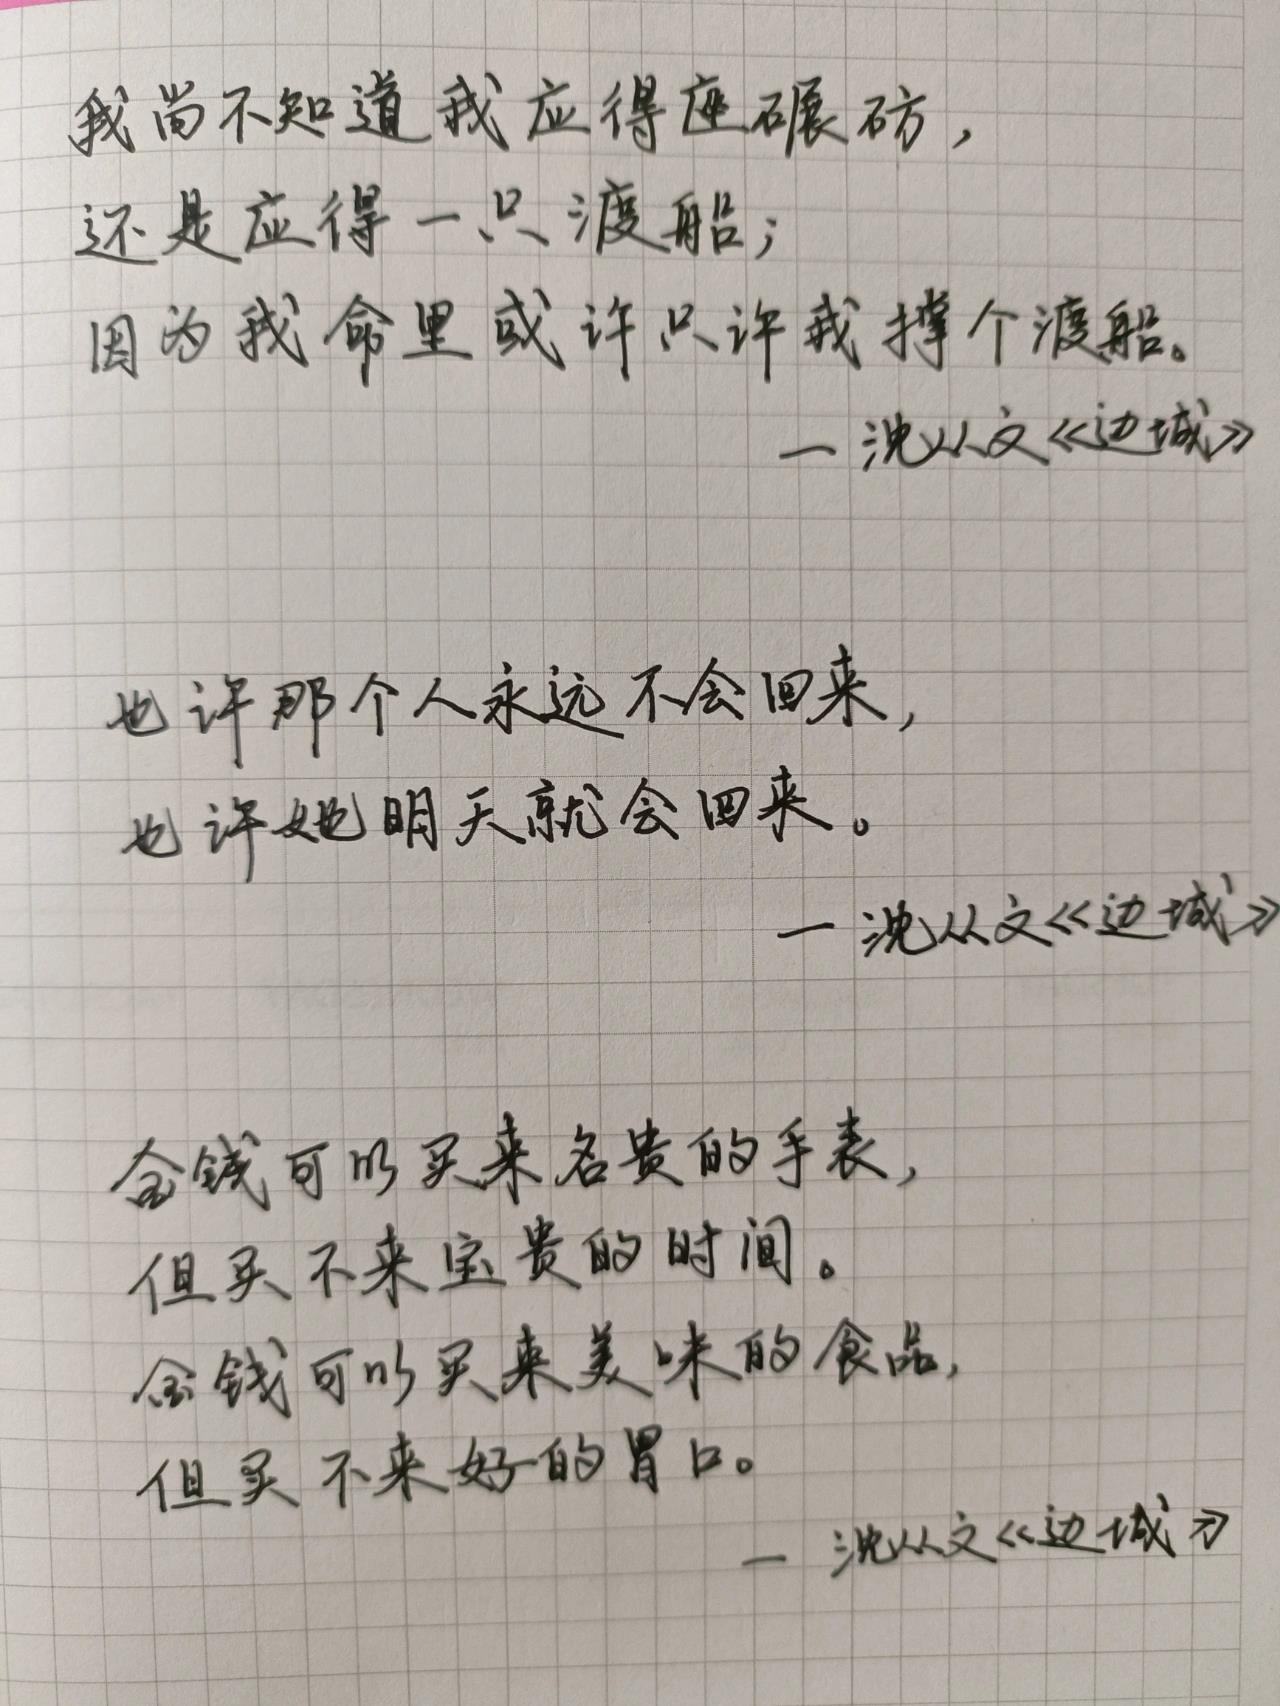 我尚不知道我应得座碾砺，
还是应得一只渡船；
因为我命里或许只许我撑个渡船。
一 沈从文《边城》
也许那个人永远不会回来，
也许她明天就会回来。
一 沈从文《边城》
金钱可以买来名贵的手表，
但买不来宝贵的时间。
金钱可以买来美味的食品，
但买不来好的胃口。
一 沈从文《边城》